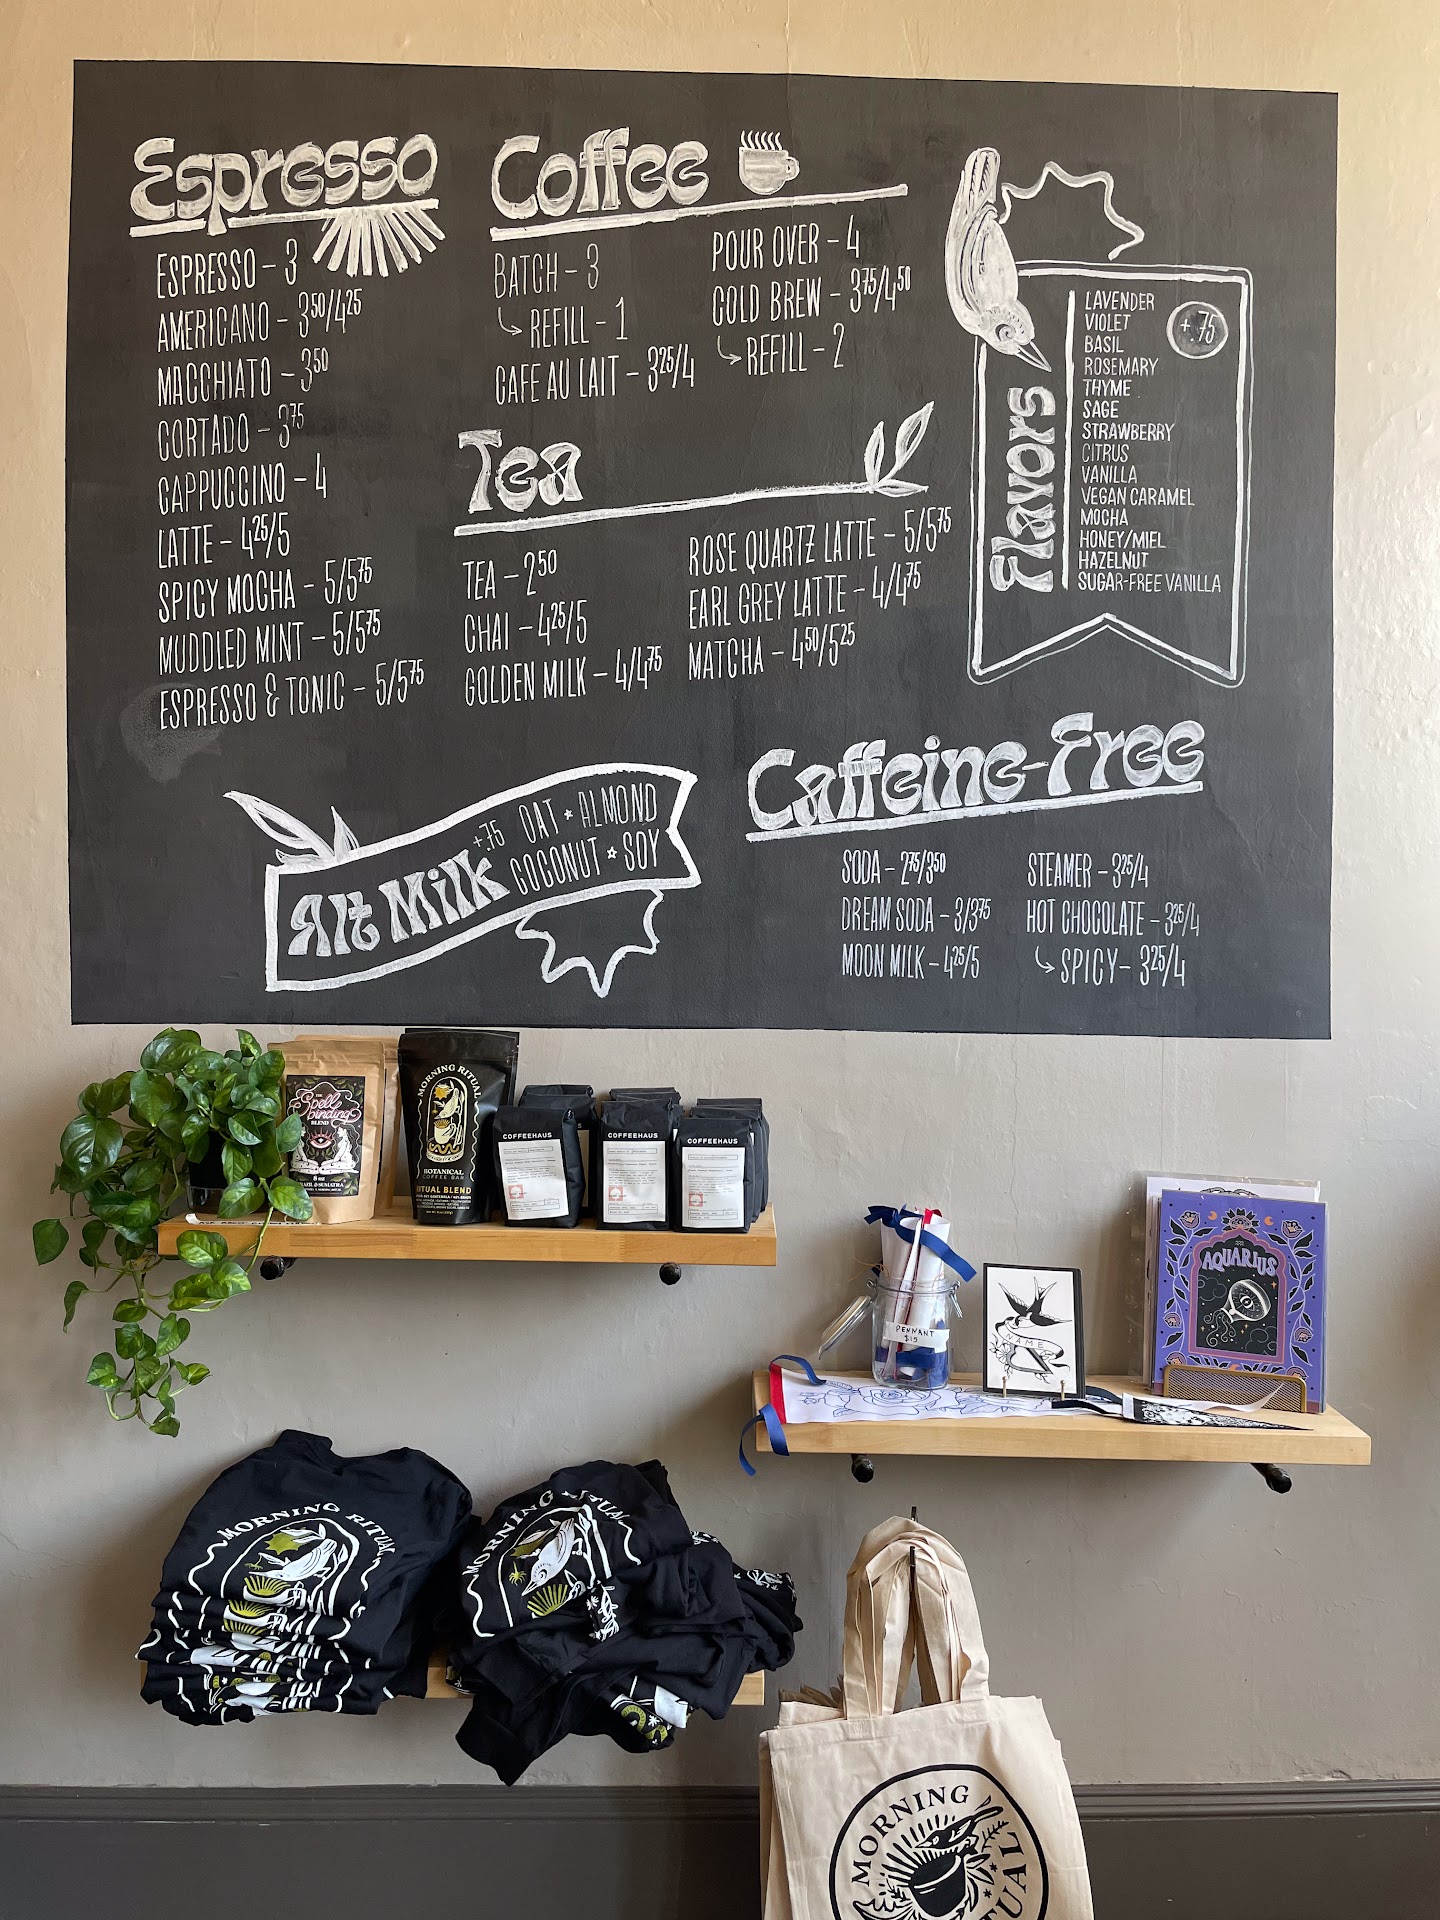 Espresso
ESPRESSO – 3
AMERICANO – 3⁵⁰/4²⁵
MACCHIATO – 3⁵⁰
CORTADO – 3⁷⁵
CAPPUCCINO – 4
LATTE – 4²⁵/5
SPICY MOCHA – 5/5⁷⁵
MUDDLED MINT – 5/5⁷⁵
ESPRESSO & TONIC – 5/5⁷⁵
Coffee
BATCH – 3
↳ REFILL – 1
CAFE AU LAIT – 3²⁵/4
POUR OVER – 4
COLD BREW – 3⁷⁵/4⁵⁰
↳ REFILL – 2
Tea
TEA – 2⁵⁰
CHAI – 4²⁵/5
GOLDEN MILK – 4/4⁷⁵
ROSE QUARTZ LATTE – 5/5⁷⁵
EARL GREY LATTE – 4/4⁷⁵
MATCHA – 4⁵⁰/5²⁵
Flavors
+.75
LAVENDER
VIOLET
BASIL
ROSEMARY
THYME
SAGE
STRAWBERRY
CITRUS
VANILLA
VEGAN CARAMEL
MOCHA
HONEY/MIEL
HAZELNUT
SUGAR-FREE VANILLA
Alt Milk +.75
OAT ★ ALMOND
COCONUT ★ SOY
Caffeine-Free
SODA – 2⁷⁵/3⁵⁰
DREAM SODA – 3/3⁷⁵
MOON MILK – 4²⁵/5
STEAMER – 3²⁵/4
HOT CHOCOLATE – 3²⁵/4
↳ SPICY – 3²⁵/4
THE
Spell
binding
BLEND
8 oz
& SUMATRA
MORNING RITUAL
BOTANICAL
COFFEE BAR
RITUAL BLEND
COFFEEHAUS
COFFEEHAUS
COFFEEHAUS
PENNANT
$15
NAME
AQUARIUS
MORNING RITUAL
MORNING RITUAL
MORNING
TUAL